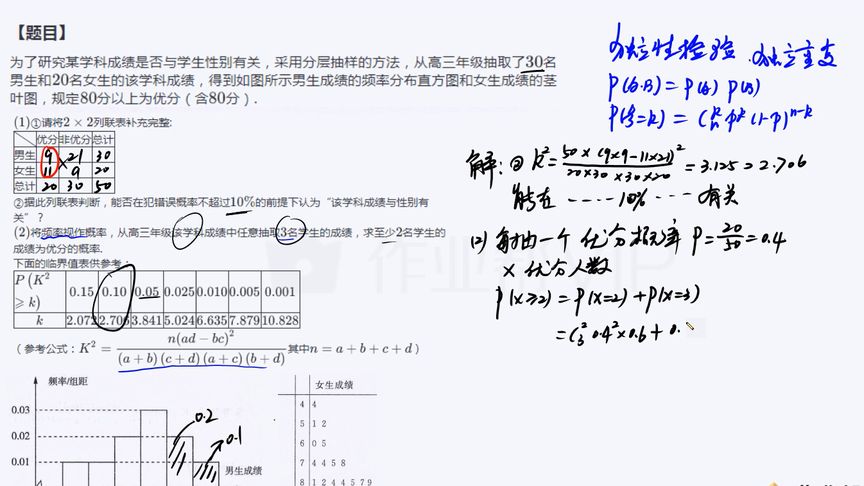 【题目】
为了研究某学科成绩是否与学生性别有关，采用分层抽样的方法，从高三年级抽取了30名
男生和20名女生的该学科成绩，得到如图所示男生成绩的频率分布直方图和女生成绩的茎
叶图，规定80分以上为优分（含80分）.
(1)①请将2×2列联表补充完整:
优分 非优分 总计
男生 9 21 30
女生 11 9 20
总计 20 30 50
②据此列联表判断，能否在犯错误概率不超过10%的前提下认为“该学科成绩与性别有
关”？
(2)将频率视作概率，从高三年级该学科成绩中任意抽取3名学生的成绩，求至少2名学生的
成绩为优分的概率.
下面的临界值表供参考：
P(K²⩾k) 0.15 0.10 0.05 0.025 0.010 0.005 0.001
k 2.072 2.706 3.841 5.024 6.635 7.879 10.828
（参考公式：K² = n(ad − bc)² / (a + b)(c + d)(a + c)(b + d) 其中n = a + b + c + d）
频率/组距
0.03
0.02
0.01
男生成绩
0.2
0.1
女生成绩
4 4
5 1 2
6 0 5
7 4 4 5 8
8 1 2 4 4 5 7 9
独立性检验. 独立重复
P(A·B) = P(A) P(B)
P(ξ=k) = C_n^k P^k (1-P)^{n-k}
解: ② k² = 50×(9×9-11×21)² / 20×30×30×20 = 3.125 > 2.706
能在 ····· 10% ··· 有关
(2) 每抽一个 优分概率 P = 20/50 = 0.4
X 优分人数
P(X≥2) = P(X=2) + P(X=3)
= C_3^2 0.4² × 0.6 + 0.